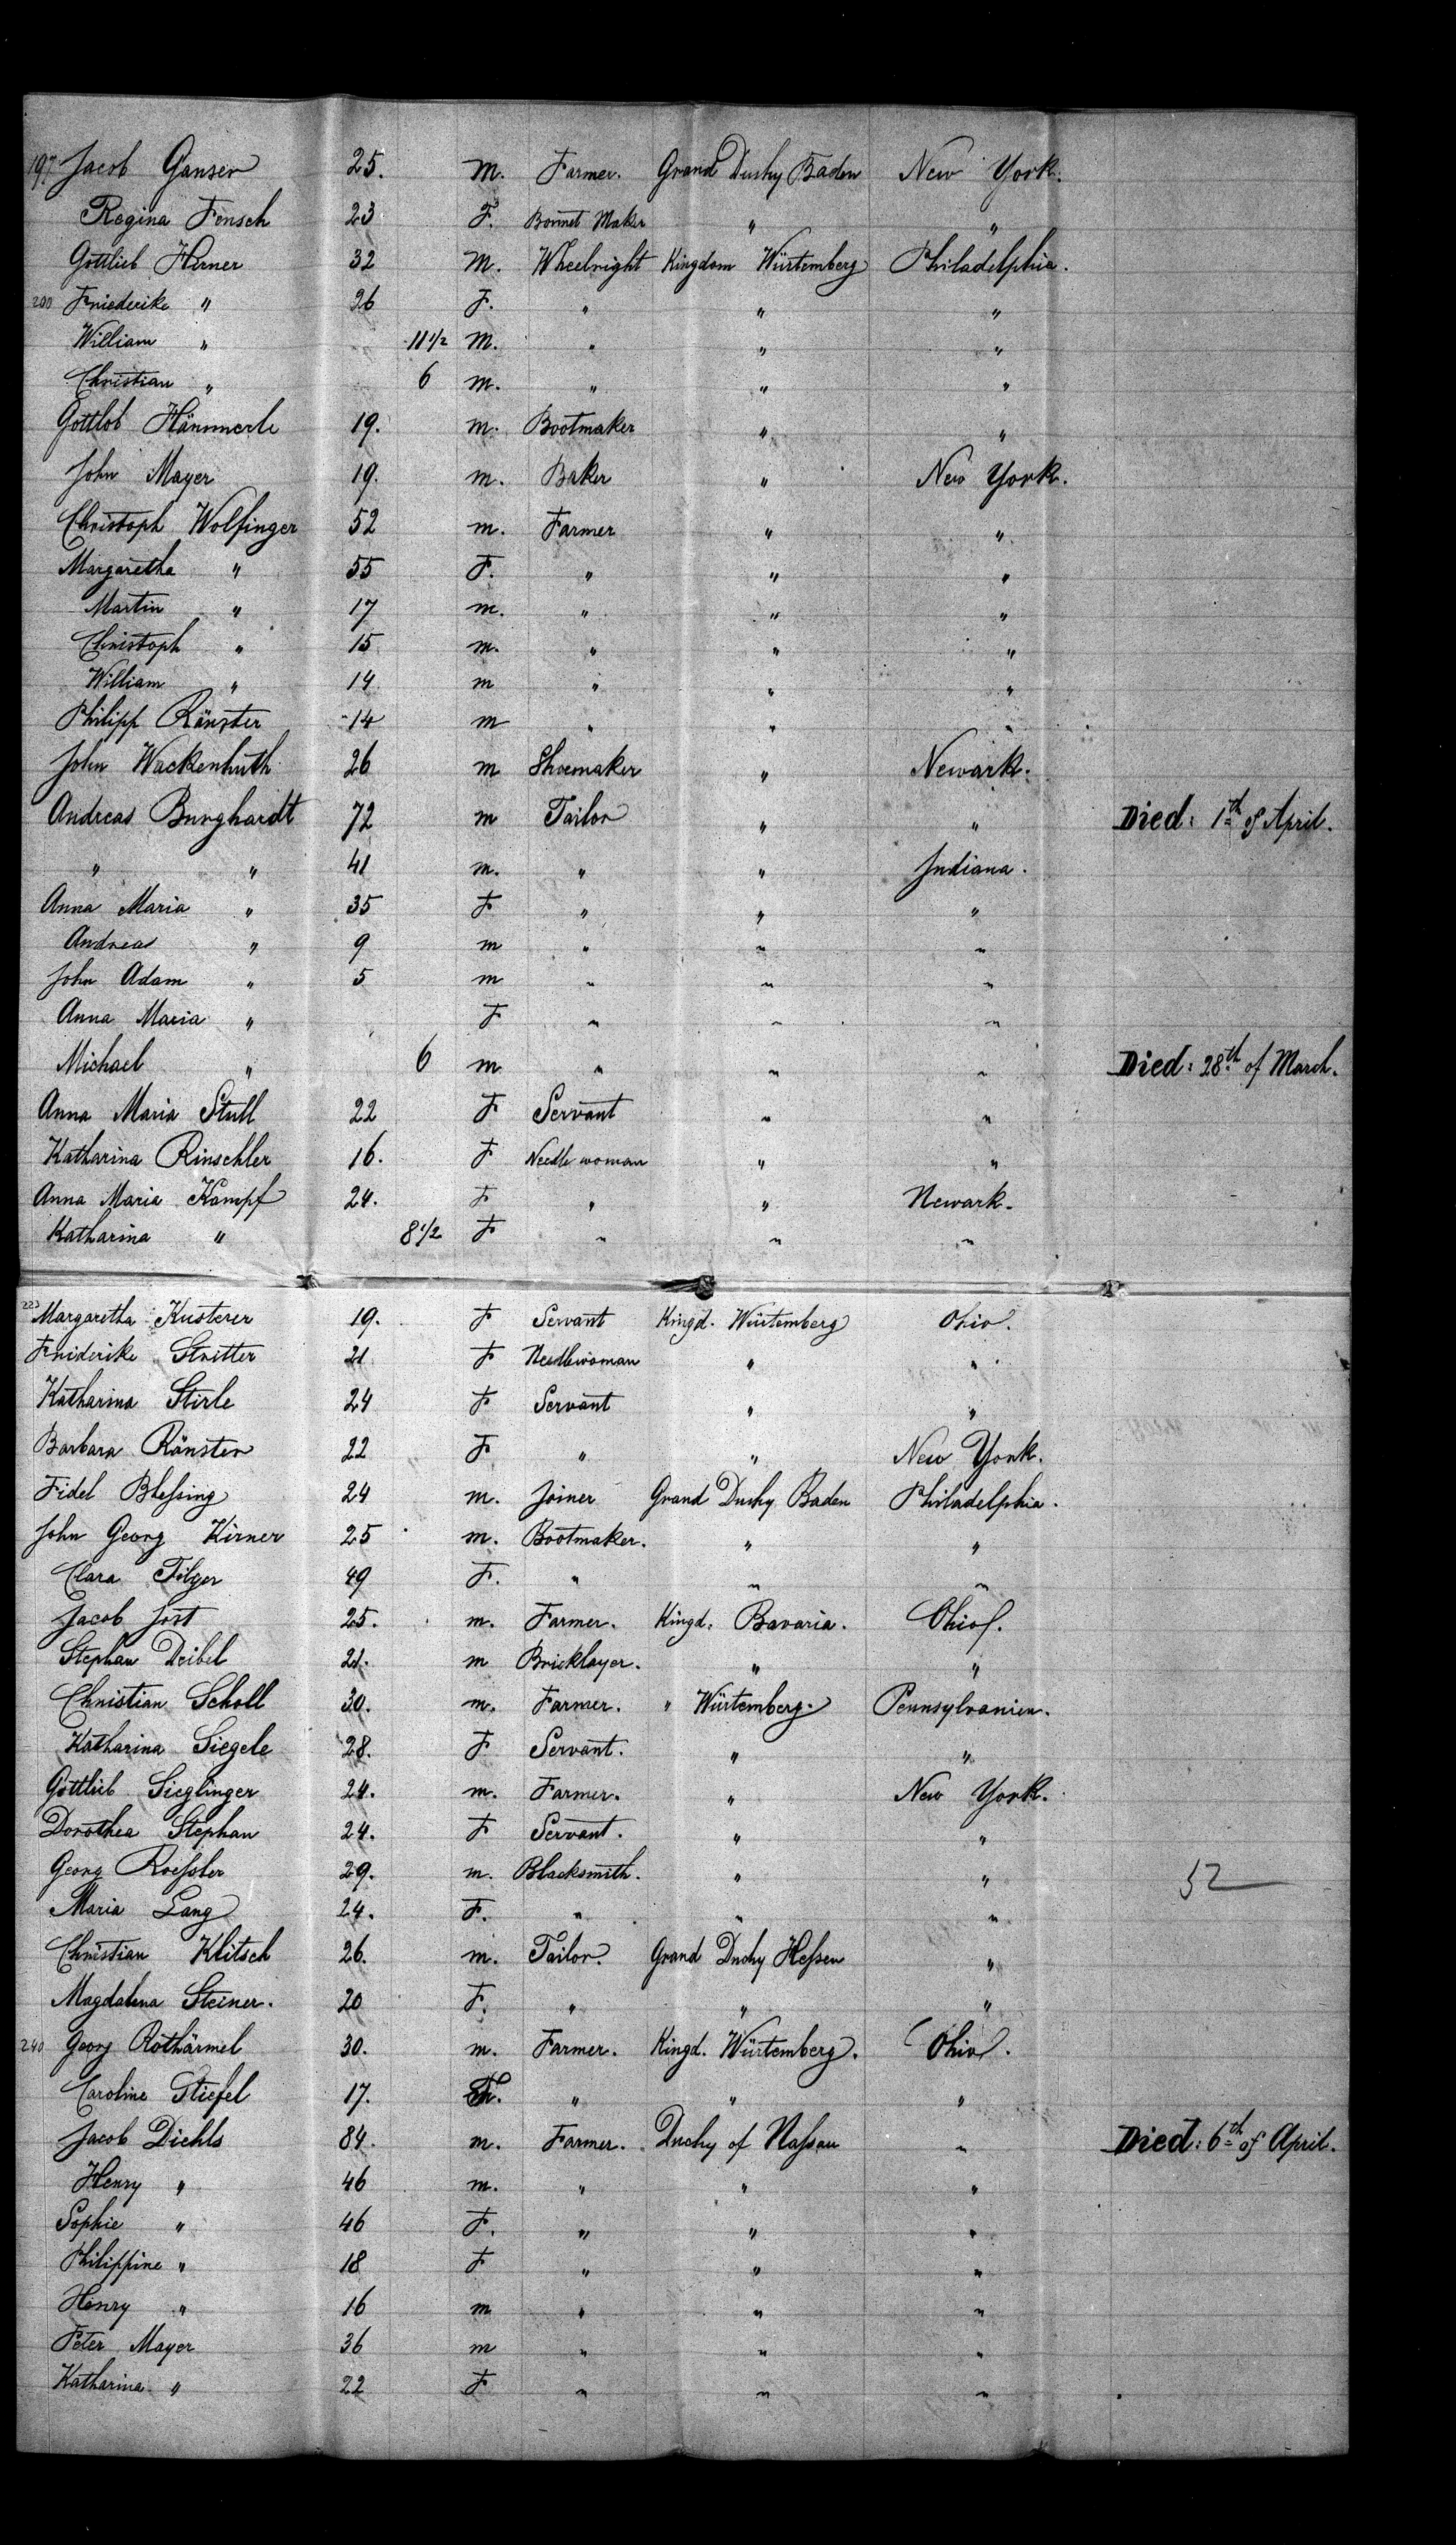 197 Jacob Ganser 25. M. Farmer. Grand Duchy Baden New York.
Regina Fensch 23 F. Bonnet Maker " "
Gottlieb Hirner 32 M. Wheelright Kingdom Würtemberg Philadelphia.
200 Friederike " 26 F. " " "
William " 11 1/2 M. " " "
Christian " 6 m. " " "
Gottlob Hämmerle 19. m. Bootmaker " "
John Mayer 19. m. Baker " New York.
Christoph Wolfinger 52 m. Farmer " "
Margaretha " 55 F. " " "
Martin " 17 m. " " "
Christoph " 15 m. " " "
William " 14 m " " "
Philipp Ränster 14 m " " "
John Wackenhuth 26 m Shoemaker " Newark.
Andreas Burghardt 72 m Tailor " " Died: 1th of April.
" " 41 m. " " Indiana.
Anna Maria " 35 F " " "
Andreas " 9 m " " "
John Adam " 5 m " " "
Anna Maria " F " " "
Michael " 6 m " " " Died: 28th of March.
Anna Maria Stull 22 F Servant " "
Katharina Rinschler 16. F Needle woman " "
Anna Maria Kampf 24. F " " Newark.
Katharina " 8 1/2 F " " "
223 Margaretha Kusterer 19. F Servant Kingd. Würtemberg Ohio.
Friderike Stritter 21 F Needlewoman " "
Katharina Stirle 24 F Servant " "
Barbara Ränster 22 F " " New York.
Fidel Blessing 24 m. Joiner Grand Duchy Baden Philadelphia.
John Georg Kirner 25 m. Bootmaker. " "
Clara Filger 49 F. " " "
Jacob Jost 25. m. Farmer. Kingd. Bavaria. Ohio.
Stephan Deibel 21. m Bricklayer. " "
Christian Scholl 30. m. Farmer. " Würtemberg. Pennsylvanien.
Katharina Siegele 28. F Servant. " "
Gottlieb Sieglinger 24. m. Farmer. " New York.
Dorothea Stephan 24. F Servant. " "
Georg Roessler 29. m. Blacksmith. " " 52
Maria Lang 24. F. " " "
Christian Klitsch 26. m. Tailor. Grand Duchy Hessen "
Magdalena Steiner. 20 F. " " "
240 Georg Rothärmel 30. m. Farmer. Kingd. Würtemberg. Ohio.
Caroline Stiefel 17. F. " " "
Jacob Diehls 84. m. Farmer. Duchy of Nassau " Died: 6th of April.
Henry " 46 m. " " "
Sophie " 46 F. " " "
Philippine " 18 F " " "
Henry " 16 m " " "
Peter Mayer 36 m " " "
Katharina " 22 F " " "